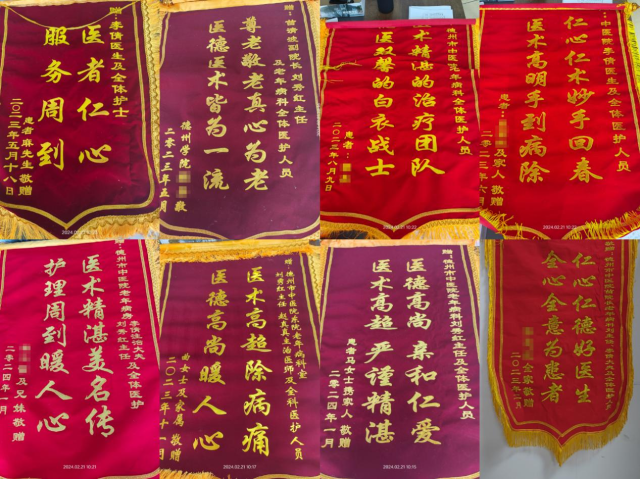 赠:李倩医生及全体护士
医者仁心
服务周到
患者麻先生敬赠
二〇二三年五月十八日
2024.02.21
刘秀红主任
及老年病科全体医护人员
尊老敬老真心为老
医德医术皆为一流
德州学院
敬
二零二三年五月
德州市中医院老年病科全体医护人员
术精湛的治疗团队
医双馨的白衣战士
患者:
二〇二三年八月九日
2024.02.21 10:22
:中医院李倩医生及全体医护人员
仁心仁术妙手回春
医术高明手到病除
患者:
及家人 敬赠
二零二三年六月
2024.02.21 10:22
赠:德州市中医院老年病房刘秀红主任
李倩主治大夫及全体医护
医术精湛美名传
护理周到暖人心
及兄妹敬赠
二零二四年一月
2024.02.21 10:21
赠:德州市中医院东院老年病科室
刘秀红主任 赵真真主治医师及全科医护人员
医术高超除病痛
医德高尚暖人心
女士及家属 敬赠
二〇二三年十一月
2024.02.21 10:17
赠:德州市中医院老年病科刘秀红主任及全体医护
医德高尚 亲和仁爱
医术高超 严谨精湛
患者马女士携家人 敬赠
二零二四年一月
2024.02.21 10:15
仁心仁德好医生
全心全意为患者
全家敬赠
二〇二三年一月